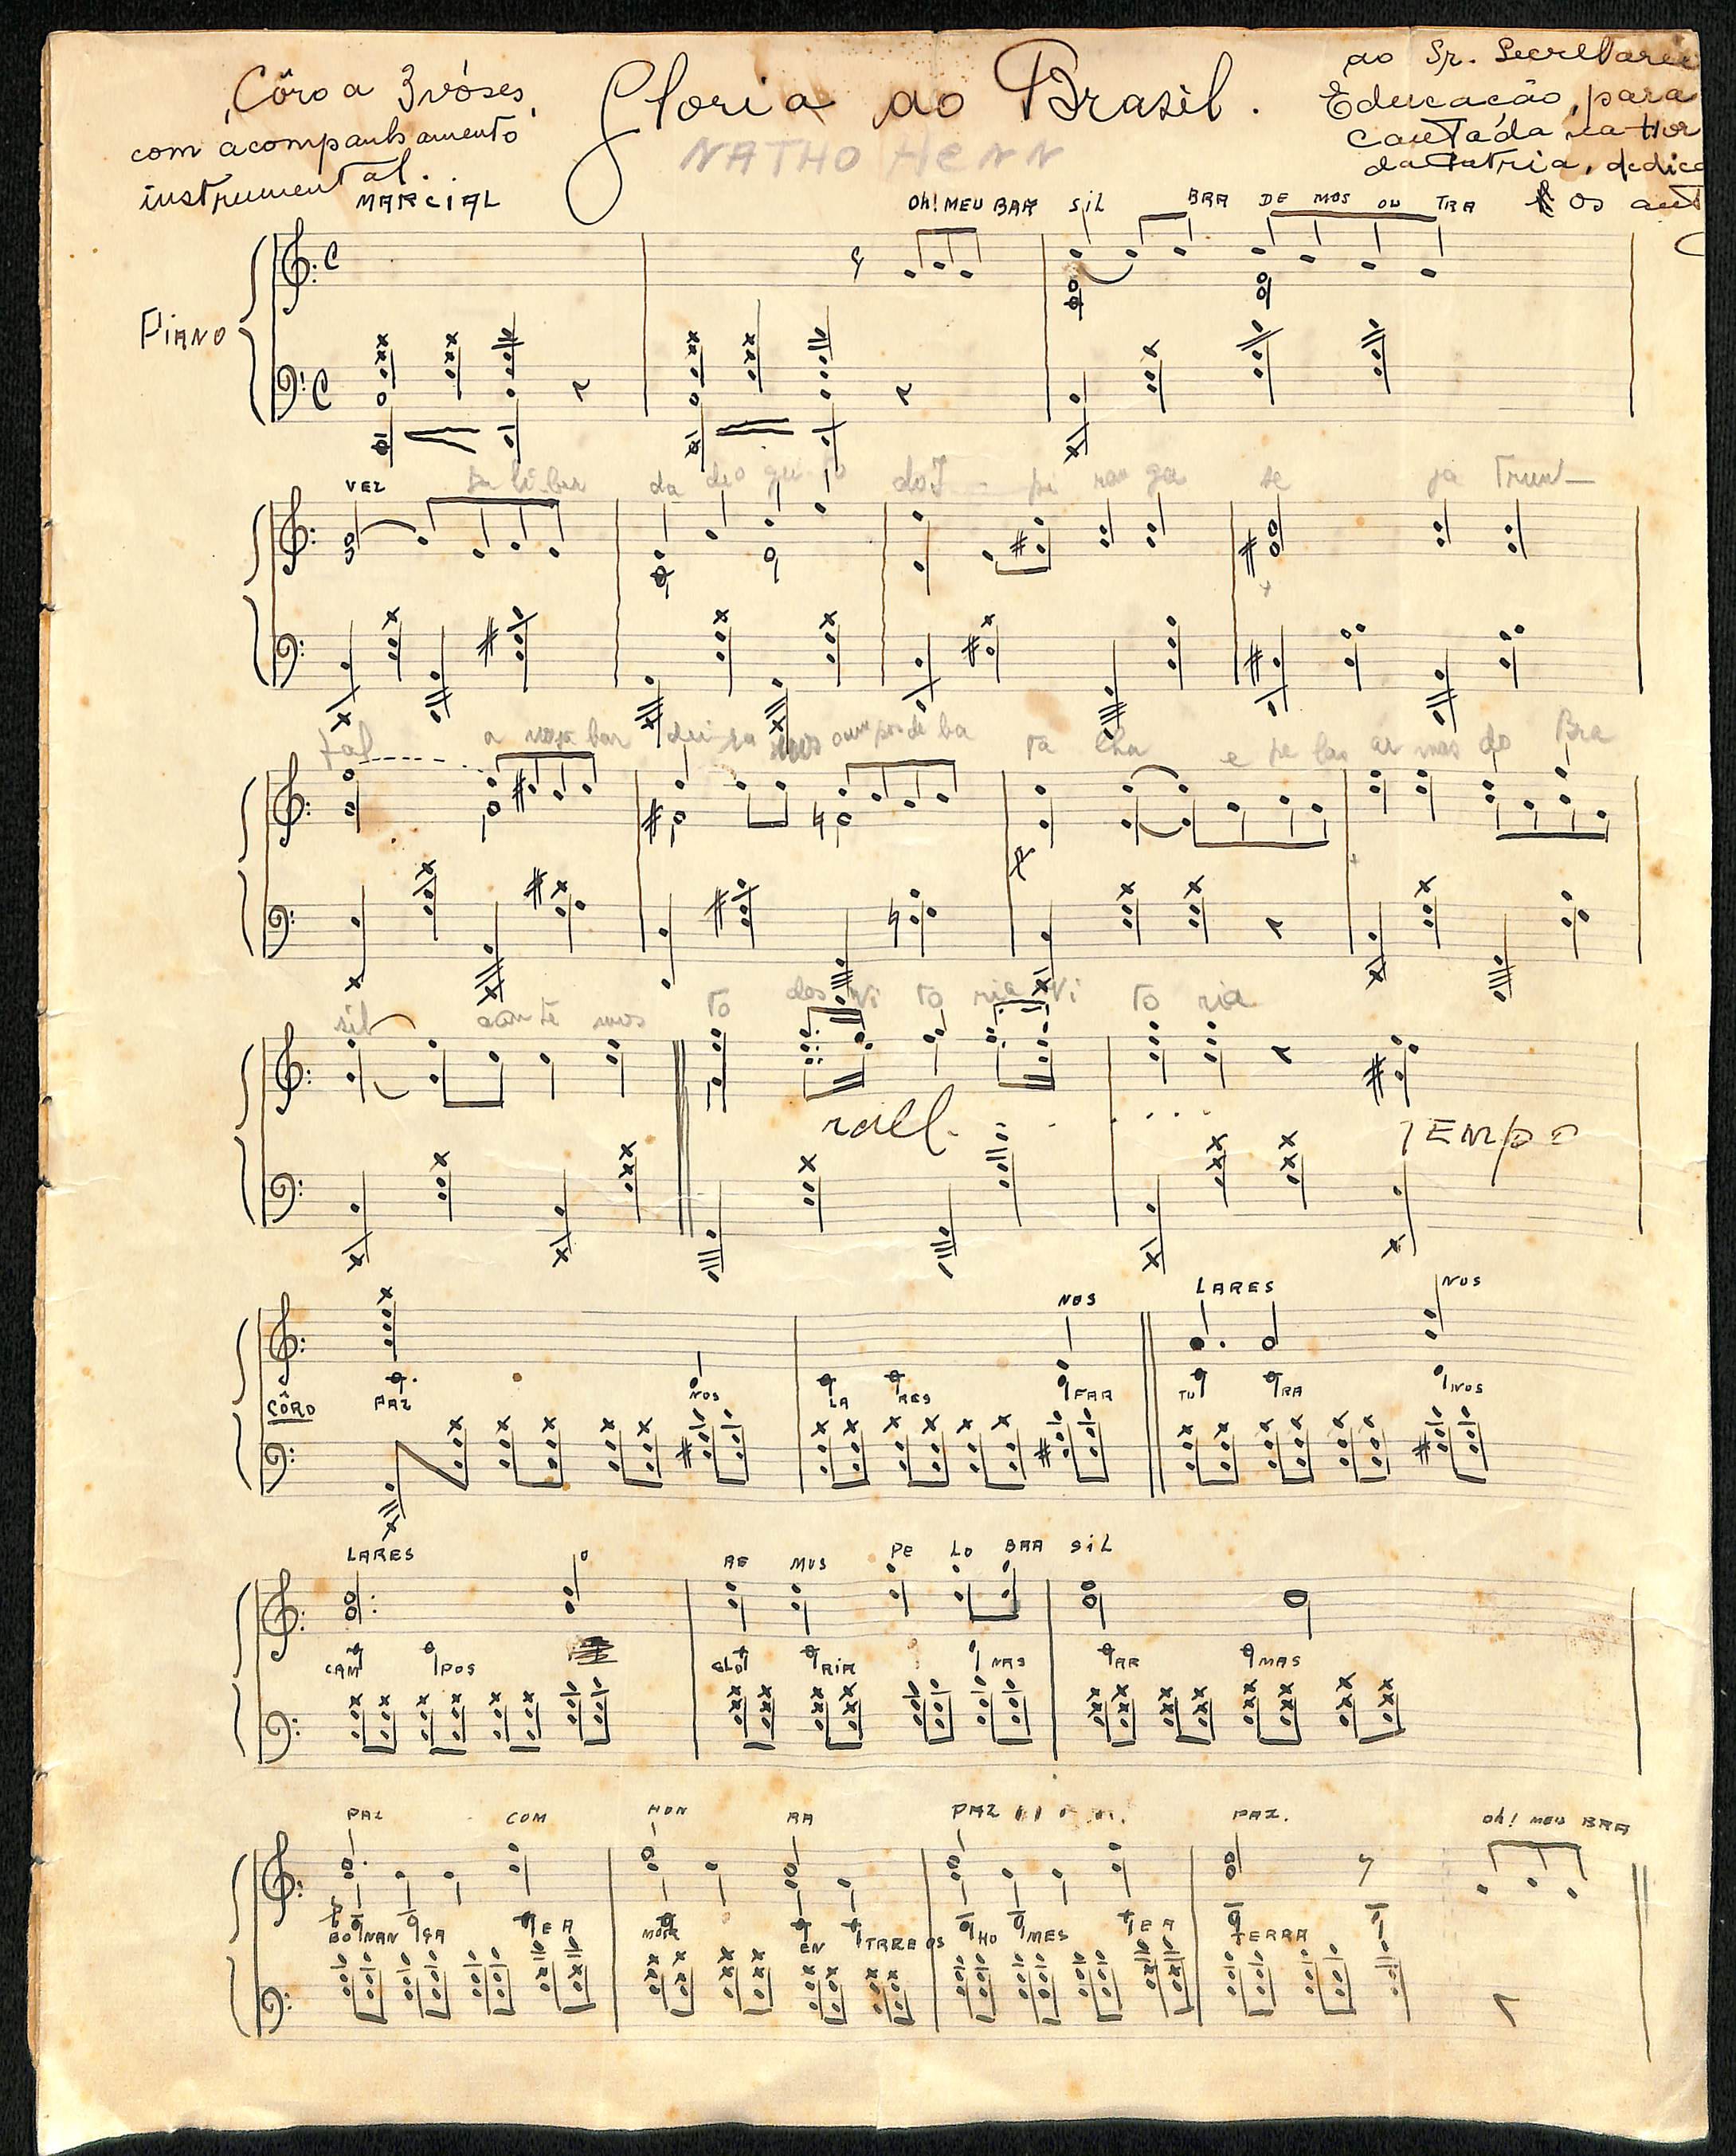 Côro a 3 vóses
com acompanhamento
instrumental.
Gloria ao Brasil.
NATHO HENN
ao Sr. Secretario
Educacão, para
cantáda na Hor
da Patria, dedica
os aut
MARCIAL
Oh! MEU BAR SIL BRA DE MOS OU TRA
PIANO
VEZ da do I pi ran ga se ja Triun
fal a nossa ban dei ra campos de ba ta lha e pe las ar mas do Bra
sil can te mos to dos Vi to ria Vi to ria
rall.
TEMPO
NOS LARES NOS
CÔRO PAZ NOS LA RES FAR TU RA NOS
LARES RE MOS PE LO BRA SIL
CAM POS GLO RIA NAS AR MAS
PAZ COM HON RA PAZ PAZ. Oh! MEU BRA
BO NAN ÇA E A MOR EN TRE OS HO MES E A TERRA